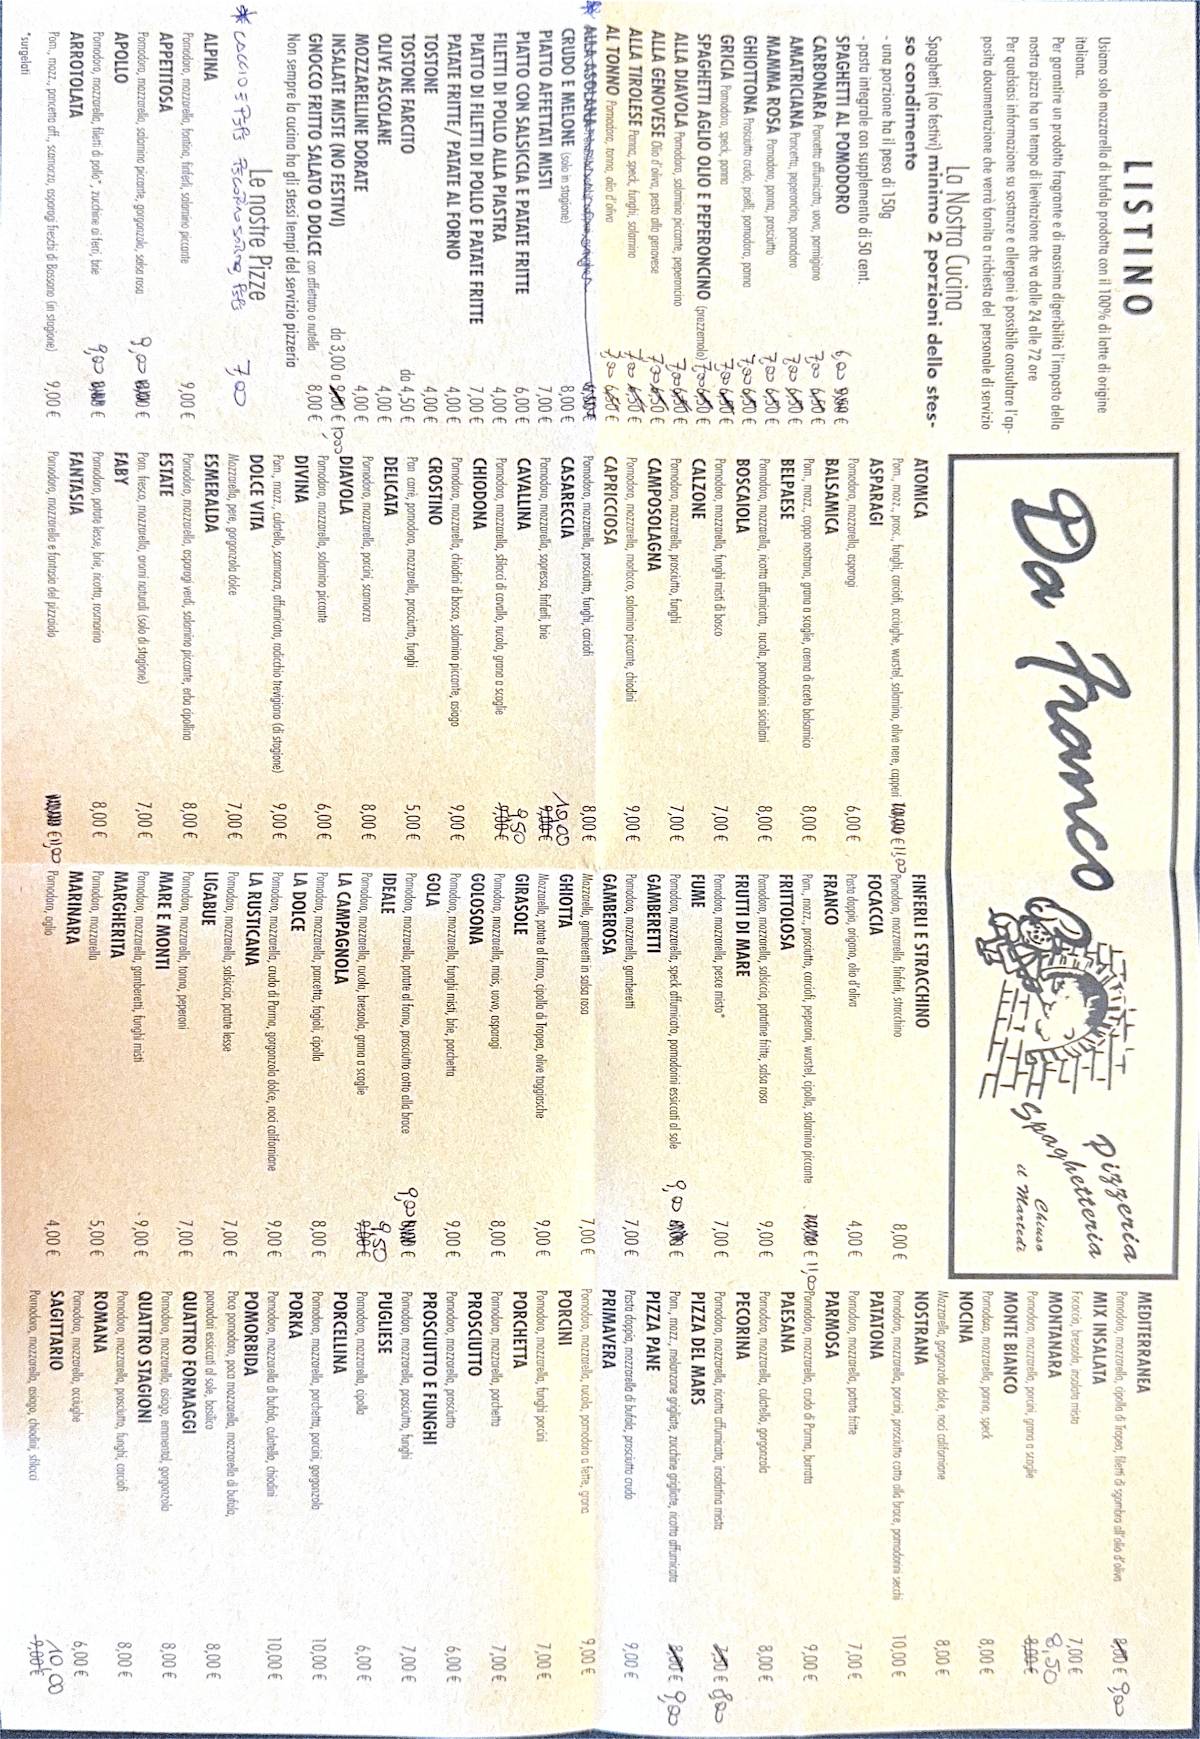 LISTINO
Usiamo solo mozzarella di bufala prodotta con il 100% di latte di origine
italiana.
Per garantire un prodotto fragrante e di massima digeribilità l'impasto della
nostra pizza ha un tempo di lievitazione che va dalle 24 alle 72 ore
Per qualsiasi informazione su sostanze e allergeni è possibile consultare l'ap-
posita documentazione che verrà fornita a richiesta del personale di servizio
La Nostra Cucina
Spaghetti (no festivi) minimo 2 porzioni dello stes-
so condimento
- una porzione ha il peso di 150g
- pasta integrale con supplemento di 50 cent.
SPAGHETTI AL POMODORO 6,00 €
CARBONARA Pancetta affumicata, uova, parmigiano 7,00 6,50 €
AMATRICIANA Pancetta, peperoncino, pomodoro 7,00 6,50 €
MAMMA ROSA Pomodoro, panna, prosciutto 7,00 6,50 €
GHIOTTONA Prosciutto crudo, piselli, pomodoro, panna 7,00 6,50 €
GRICIA Pomodoro, speck, panna 7,00 6,50 €
SPAGHETTI AGLIO OLIO E PEPERONCINO (prezzemolo) 7,00 6,50 €
ALLA DIAVOLA Pomodoro, salamino piccante, peperoncino 7,00 6,50 €
ALLA GENOVESE Olio d'oliva, pesto alla genovese 7,00 6,50 €
ALLA TIROLESE Panna, speck, funghi, salamino 7,00 6,50 €
AL TONNO Pomodoro, tonno, olio d'oliva 7,00 6,50 €
* ALLA ASOLANA
CRUDO E MELONE (solo in stagione) 8,00 €
PIATTO AFFETTATI MISTI 7,00 €
PIATTO CON SALSICCIA E PATATE FRITTE 6,00 €
FILETTI DI POLLO ALLA PIASTRA 4,00 €
PIATTO DI FILETTI DI POLLO E PATATE FRITTE 7,00 €
PATATE FRITTE/ PATATE AL FORNO 4,00 €
TOSTONE 4,00 €
TOSTONE FARCITO da 4,50 €
OLIVE ASCOLANE 4,00 €
MOZZARELLINE DORATE 4,00 €
INSALATE MISTE (NO FESTIVI) da 3,00 a 9,00 € 10,00
GNOCCO FRITTO SALATO O DOLCE con affettato o nutella 8,00 €
Non sempre la cucina ha gli stessi tempi del servizio pizzeria
Le nostre Pizze
* CACCIO E PEPE 7,00
ALPINA
Pomodoro, mozzarella, fontina, finferli, salamino piccante 9,00 €
APPETITOSA
Pomodoro, mozzarella, salamino piccante, gorgonzola, salsa rosa 9,00 €
APOLLO
Pomodoro, mozzarella, filetti di pollo*, zucchine ai ferri, brie 9,00 €
ARROTOLATA
Pom., mozz., pancetta aff., scamorza, asparagi freschi di Bassano (in stagione) 9,00 €
*surgelati
Da Franco
Pizzeria
Spaghetteria
Chiuso
il Martedì
ATOMICA
Pom., mozz., prosc., funghi, carciofi, acciughe, wurstel, salamino, olive nere, capperi 10,00 € 11,00
ASPARAGI
Pomodoro, mozzarella, asparagi 6,00 €
BALSAMICA
Pom., mozz., coppa nostrana, grana a scaglie, crema di aceto balsamico 8,00 €
BELPAESE
Pomodoro, mozzarella, ricotta affumicata, rucola, pomodorini siciliani 8,00 €
BOSCAIOLA
Pomodoro, mozzarella, funghi misti di bosco 7,00 €
CALZONE
Pomodoro, mozzarella, prosciutto, funghi 7,00 €
CAMPOSOLAGNA
Pomodoro, mozzarella, morlacco, salamino piccante, chiodini 9,00 €
CAPRICCIOSA
Pomodoro, mozzarella, prosciutto, funghi, carciofi 8,00 €
CASARECCIA
Pomodoro, mozzarella, sopressa, finferli, brie 9,00 € 10,00
CAVALLINA
Pomodoro, mozzarella, sfilacci di cavallo, rucola, grana a scaglie 9,00 € 9,50
CHIODONA
Pomodoro, mozzarella, chiodini di bosco, salamino piccante, asiago 9,00 €
CROSTINO
Pan carrè, pomodoro, mozzarella, prosciutto, funghi 5,00 €
DELICATA
Pomodoro, mozzarella, porcini, scamorza 8,00 €
DIAVOLA
Pomodoro, mozzarella, salamino piccante 6,00 €
DIVINA
Pom., mozz., culatello, scamorza, affumicata, radicchio trevigiano (di stagione) 9,00 €
DOLCE VITA
Mozzarella, pere, gorgonzola dolce 7,00 €
ESMERALDA
Pomodoro, mozzarella, asparagi verdi, salamino piccante, erba cipollina 8,00 €
ESTATE
Pom. fresco, mozzarella, aromi naturali (solo di stagione) 7,00 €
FABY
Pomodoro, patate lesse, brie, ricotta, rosmarino 8,00 €
FANTASIA
Pomodoro, mozzarella e fantasia del pizzaiolo 10,00 € 11,00
FINFERLI E STRACCHINO
Pomodoro, mozzarella, finferli, stracchino 8,00 €
FOCACCIA
Pasta doppia, origano, olio d'oliva 4,00 €
FRANCO
Pom., mozz., prosciutto, carciofi, peperoni, wurstel, cipolla, salamino piccante 10,00 € 11,00
FRITTOLOSA
Pomodoro, mozzarella, salsiccia, patatine fritte, salsa rosa 9,00 €
FRUTTI DI MARE
Pomodoro, mozzarella, pesce misto* 7,00 €
FUME
Pomodoro, mozzarella, speck affumicato, pomodorini essiccati al sole 9,00 €
GAMBERETTI
Pomodoro, mozzarella, gamberetti 7,00 €
GAMBEROSA
Mozzarella, gamberetti in salsa rosa 7,00 €
GHIOTTA
Mozzarella, patate al forno, cipolla di Tropea, olive taggiasche 9,00 €
GIRASOLE
Pomodoro, mozzarella, mais, uovo, asparagi 8,00 €
GOLOSONA
Pomodoro, mozzarella, funghi misti, brie, porchetta 9,00 €
GOLA
Pomodoro, mozzarella, patate al forno, prosciutto cotto alla brace 9,00 €
IDEALE
Pomodoro, mozzarella, rucola, bresaola, grana a scaglie 9,00 € 9,50
LA CAMPAGNOLA
Pomodoro, mozzarella, pancetta, fagioli, cipolla 8,00 €
LA DOLCE
Pomodoro, mozzarella, crudo di Parma, gorgonzola dolce, noci californiane 9,00 €
LA RUSTICANA
Pomodoro, mozzarella, salsiccia, patate lesse 7,00 €
LIGABUE
Pomodoro, mozzarella, tonno, peperoni 7,00 €
MARE E MONTI
Pomodoro, mozzarella, gamberetti, funghi misti 9,00 €
MARGHERITA
Pomodoro, mozzarella 5,00 €
MARINARA
Pomodoro, aglio 4,00 €
MEDITERRANEA
Pomodoro, mozzarella, cipolla di Tropea, filetti di sgombro all'olio d'oliva 8,00 € 9,00
MIX INSALATA
Focaccia, bresaola, insalata mista 7,00 €
MONTANARA
Pomodoro, mozzarella, porcini, grana a scaglie 8,00 € 8,50
MONTE BIANCO
Pomodoro, mozzarella, panna, speck 8,00 €
NOCINA
Mozzarella, gorgonzola dolce, noci californiane 8,00 €
NOSTRANA
Pomodoro, mozzarella, porcini, prosciutto cotto alla brace, pomodorini secchi 10,00 €
PATATONA
Pomodoro, mozzarella, patate fritte 7,00 €
PARMOSA
Pomodoro, mozzarella, crudo di Parma, burrata 9,00 €
PAESANA
Pomodoro, mozzarella, culatello, gorgonzola 8,00 €
PECORINA
Pomodoro, mozzarella, ricotta affumicata, insalatina mista 7,50 € 8,00
PIZZA DEL MARS
Pom., mozz., melanzane grigliate, zucchine grigliate, ricotta affumicata 8,00 € 9,00
PIZZA PANE
Pasta doppia, mozzarella di bufala, prosciutto crudo 9,00 €
PRIMAVERA
Pomodoro, mozzarella, rucola, pomodoro a fette, grana 9,00 €
PORCINI
Pomodoro, mozzarella, funghi porcini 7,00 €
PORCHETTA
Pomodoro, mozzarella, porchetta 7,00 €
PROSCIUTTO
Pomodoro, mozzarella, prosciutto 6,00 €
PROSCIUTTO E FUNGHI
Pomodoro, mozzarella, prosciutto, funghi 7,00 €
PUGLIESE
Pomodoro, mozzarella, cipolla 6,00 €
PORCELLINA
Pomodoro, mozzarella, porchetta, porcini, gorgonzola 10,00 €
PORKA
Pomodoro, mozzarella di bufala, culatello, chiodini 10,00 €
POMORBIDA
Poco pomodoro, poca mozzarella, mozzarella di bufala,
pomodori essiccati al sole, basilico 8,00 €
QUATTRO FORMAGGI
Pomodoro, mozzarella, asiago, emmental, gorgonzola 8,00 €
QUATTRO STAGIONI
Pomodoro, mozzarella, prosciutto, funghi, carciofi 8,00 €
ROMANA
Pomodoro, mozzarella, acciughe 6,00 €
SAGITTARIO
Pomodoro, mozzarella, asiago, chiodini, sfilacci 9,00 € 10,00